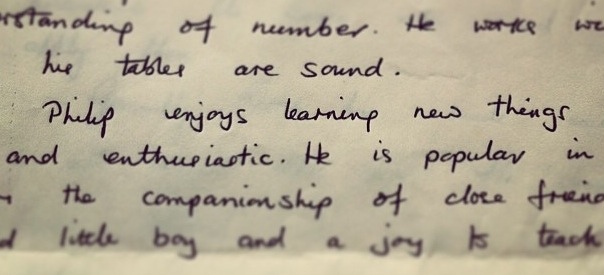 rstanding of number. He works we
his tables are sound.
Philip enjoys learning new things
and enthusiastic. He is popular in
the companionship of close friend
d little boy and a joy to teach